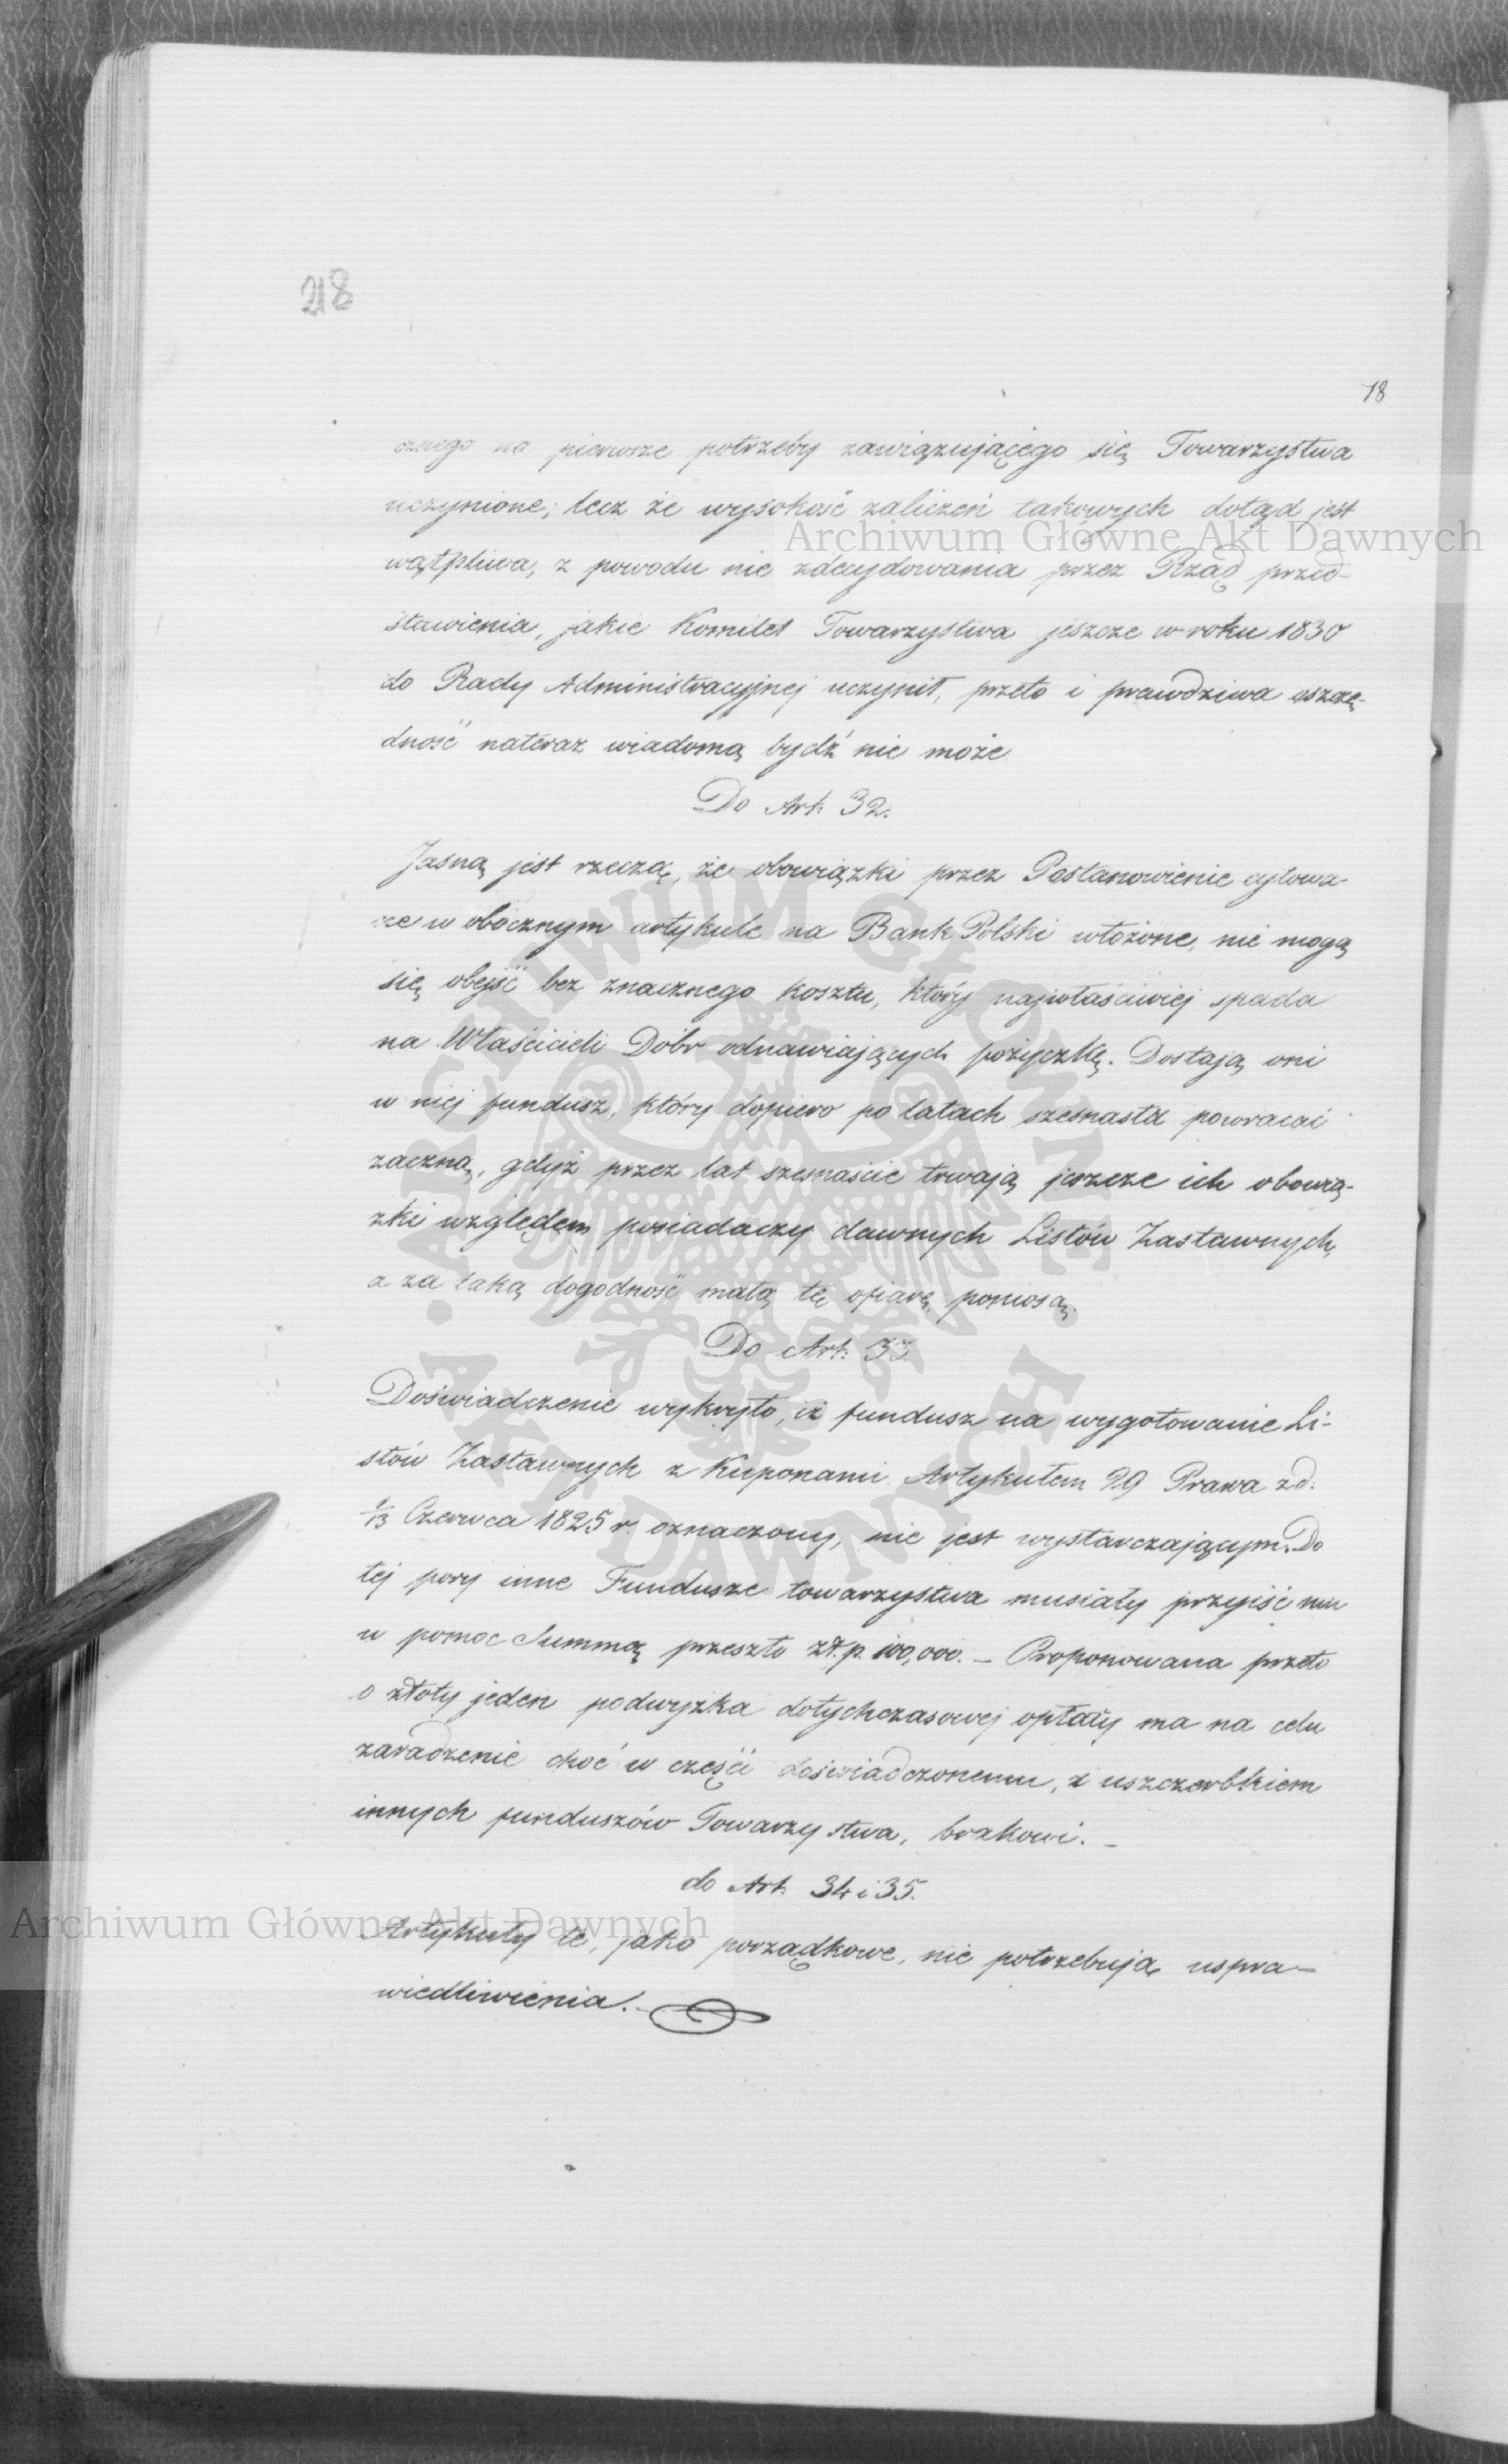 218
18
cznego na pierwsze potrzeby zawiązującego się Towarzystwa
uczynione; lecz że wysokość zaliczeń takowych dotąd jest
Archiwum Główne Akt Dawnych
wątpliwa, z powodu nie zdecydowania przez Rząd przed-
stawienia, jakie Komitet Towarzystwa jeszcze w roku 1830
do Rady Administracyjnej uczynił, przeto i prawdziwa oszczę-
dność nateraz wiadomą bydź nie może
Do Art: 32.
Jasną jest rzeczą, że obowiązki przez Postanowienie cytowa-
ne w obocznym artykule na Bank Polski włożone, nie mogą
się obejść bez znacznego kosztu, który najwłaściwiej spada
na Właścicieli Dóbr odnawiających pożyczkę. Dostają oni
w niej fundusz, który dopiero po latach szesnastu powracać
zaczną, gdyż przez lat szesnaście trwają jeszcze ich obowią-
zki względem posiadaczy dawnych Listów Zastawnych,
a za taką dogodność małą tę ofiarę poniosą.
Do Art: 33
Doświadczenie wykryło, iż fundusz na wygotowanie Li-
stów Zastawnych z Kuponami Artykułem 29 Prawa z d:
1/13 Czerwca 1825 r. oznaczony, nie jest wystarczającym. Do
tej pory inne Fundusze towarzystwa musiały przyiść mu
w pomoc Summą przeszło zł.p. 100,000. – Proponowana przeto
o złoty jeden podwyżka dotychczasowej opłaty ma na celu
zaradzenie choć w części doświadczonemu, z uszczerbkiem
innych funduszów Towarzystwa, brakowi. –
do Art. 34 i 35.
Archiwum Główne Akt Dawnych
Artykuły te, jako porządkowe, nie potrzebują uspra-
wiedliwienia. –
ARCHIWUM GŁÓWNE
AKT DAWNYCH